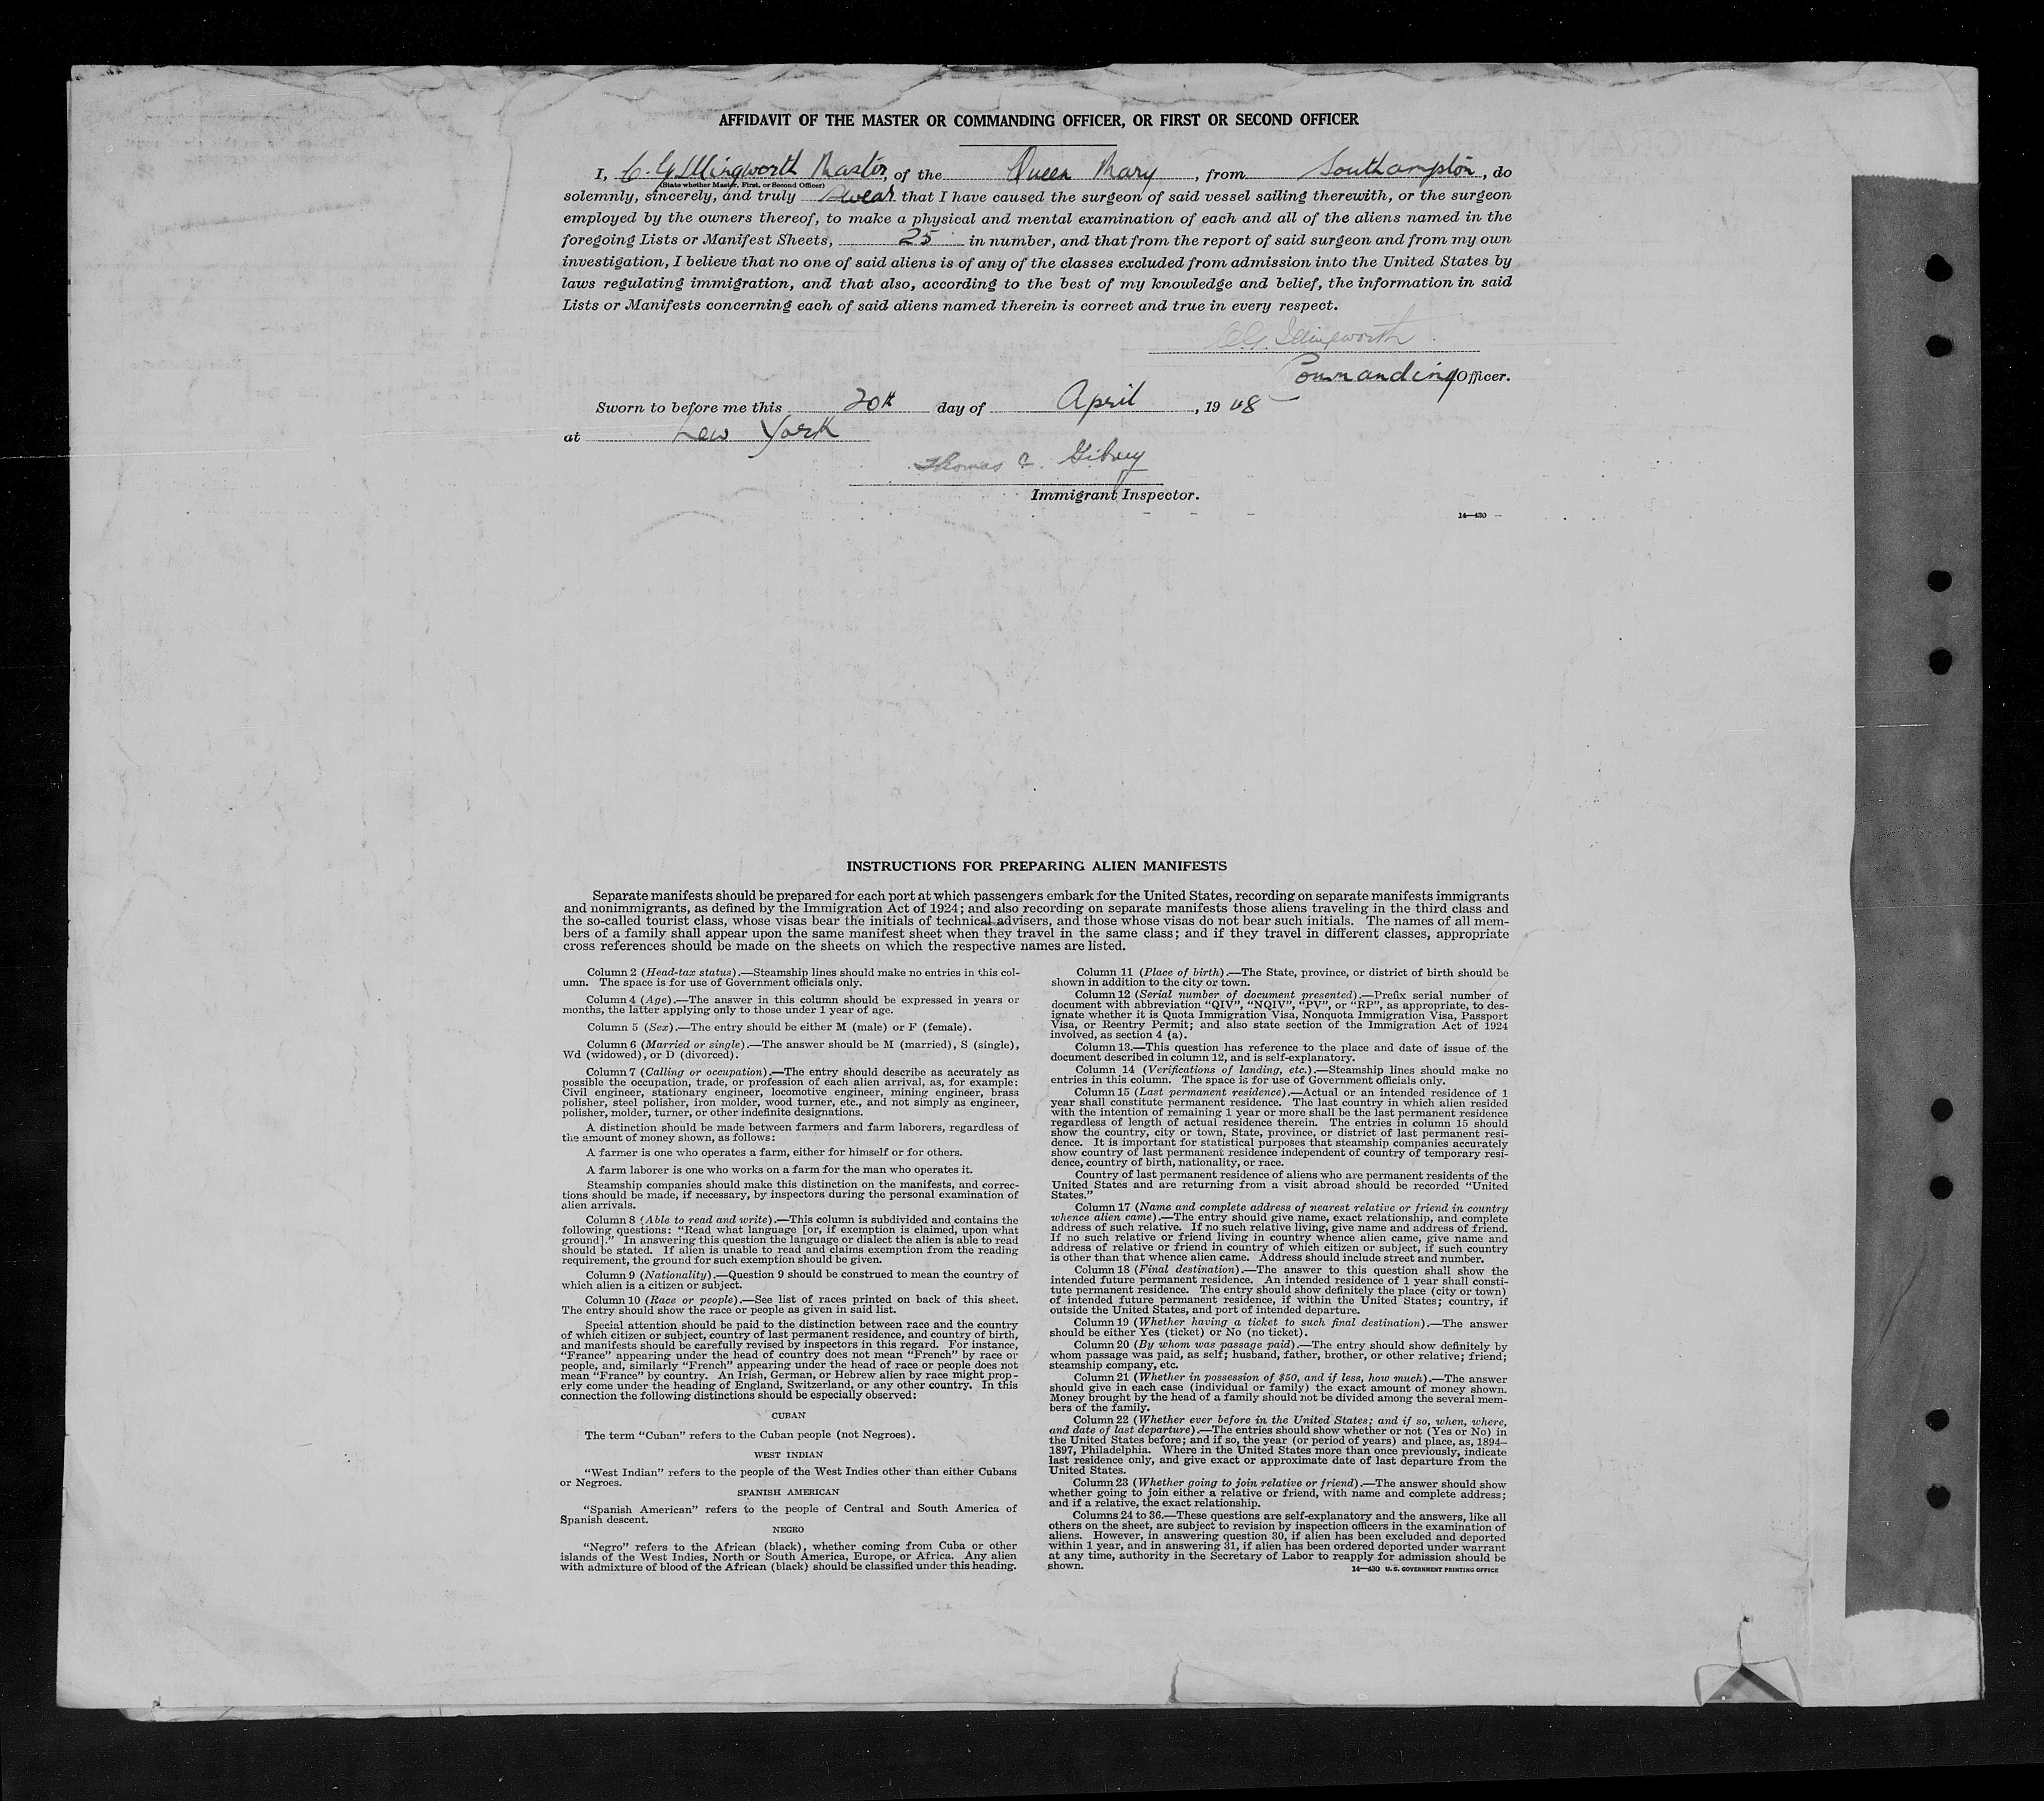 AFFIDAVIT OF THE MASTER OR COMMANDING OFFICER, OR FIRST OR SECOND OFFICER
I, C. G Illingworth Master, of the Queen Mary, from Southampton, do
(State whether Master, First, or Second Officer)
solemnly, sincerely, and truly swear that I have caused the surgeon of said vessel sailing therewith, or the surgeon
employed by the owners thereof, to make a physical and mental examination of each and all of the aliens named in the
foregoing Lists or Manifest Sheets, 25 in number, and that from the report of said surgeon and from my own
investigation, I believe that no one of said aliens is of any of the classes excluded from admission into the United States by
laws regulating immigration, and that also, according to the best of my knowledge and belief, the information in said
Lists or Manifests concerning each of said aliens named therein is correct and true in every respect.
C.G. Illingworth
Commanding Officer.
Sworn to before me this 20th day of April, 1948
at New York
Thomas C. Gibney
Immigrant Inspector.
14—430
INSTRUCTIONS FOR PREPARING ALIEN MANIFESTS
Separate manifests should be prepared for each port at which passengers embark for the United States, recording on separate manifests immigrants
and nonimmigrants, as defined by the Immigration Act of 1924; and also recording on separate manifests those aliens traveling in the third class and
the so-called tourist class, whose visas bear the initials of technical advisers, and those whose visas do not bear such initials. The names of all mem-
bers of a family shall appear upon the same manifest sheet when they travel in the same class; and if they travel in different classes, appropriate
cross references should be made on the sheets on which the respective names are listed.
Column 2 (Head-tax status).—Steamship lines should make no entries in this col-
umn. The space is for use of Government officials only.
Column 4 (Age).—The answer in this column should be expressed in years or
months, the latter applying only to those under 1 year of age.
Column 5 (Sex).—The entry should be either M (male) or F (female).
Column 6 (Married or single).—The answer should be M (married), S (single),
Wd (widowed), or D (divorced).
Column 7 (Calling or occupation).—The entry should describe as accurately as
possible the occupation, trade, or profession of each alien arrival, as, for example:
Civil engineer, stationary engineer, locomotive engineer, mining engineer, brass
polisher, steel polisher, iron molder, wood turner, etc., and not simply as engineer,
polisher, molder, turner, or other indefinite designations.
A distinction should be made between farmers and farm laborers, regardless of
the amount of money shown, as follows:
A farmer is one who operates a farm, either for himself or for others.
A farm laborer is one who works on a farm for the man who operates it.
Steamship companies should make this distinction on the manifests, and correc-
tions should be made, if necessary, by inspectors during the personal examination of
alien arrivals.
Column 8 (Able to read and write).—This column is subdivided and contains the
following questions: "Read what language [or, if exemption is claimed, upon what
ground]." In answering this question the language or dialect the alien is able to read
should be stated. If alien is unable to read and claims exemption from the reading
requirement, the ground for such exemption should be given.
Column 9 (Nationality).—Question 9 should be construed to mean the country of
which alien is a citizen or subject.
Column 10 (Race or people).—See list of races printed on back of this sheet.
The entry should show the race or people as given in said list.
Special attention should be paid to the distinction between race and the country
of which citizen or subject, country of last permanent residence, and country of birth,
and manifests should be carefully revised by inspectors in this regard. For instance,
"France" appearing under the head of country does not mean "French" by race or
people, and, similarly "French" appearing under the head of race or people does not
mean "France" by country. An Irish, German, or Hebrew alien by race might prop-
erly come under the heading of England, Switzerland, or any other country. In this
connection the following distinctions should be especially observed:
CUBAN
The term "Cuban" refers to the Cuban people (not Negroes).
WEST INDIAN
"West Indian" refers to the people of the West Indies other than either Cubans
or Negroes.
SPANISH AMERICAN
"Spanish American" refers to the people of Central and South America of
Spanish descent.
NEGRO
"Negro" refers to the African (black), whether coming from Cuba or other
islands of the West Indies, North or South America, Europe, or Africa. Any alien
with admixture of blood of the African (black) should be classified under this heading.
Column 11 (Place of birth).—The State, province, or district of birth should be
shown in addition to the city or town.
Column 12 (Serial number of document presented).—Prefix serial number of
document with abbreviation "QIV", "NQIV", "PV", or "RP", as appropriate, to des-
ignate whether it is Quota Immigration Visa, Nonquota Immigration Visa, Passport
Visa, or Reentry Permit; and also state section of the Immigration Act of 1924
involved, as section 4 (a).
Column 13.—This question has reference to the place and date of issue of the
document described in column 12, and is self-explanatory.
Column 14 (Verifications of landing, etc.).—Steamship lines should make no
entries in this column. The space is for use of Government officials only.
Column 15 (Last permanent residence).—Actual or an intended residence of 1
year shall constitute permanent residence. The last country in which alien resided
with the intention of remaining 1 year or more shall be the last permanent residence
regardless of length of actual residence therein. The entries in column 15 should
show the country, city or town, State, province, or district of last permanent resi-
dence. It is important for statistical purposes that steamship companies accurately
show country of last permanent residence independent of country of temporary resi-
dence, country of birth, nationality, or race.
Country of last permanent residence of aliens who are permanent residents of the
United States and are returning from a visit abroad should be recorded "United
States."
Column 17 (Name and complete address of nearest relative or friend in country
whence alien came).—The entry should give name, exact relationship, and complete
address of such relative. If no such relative living, give name and address of friend.
If no such relative or friend living in country whence alien came, give name and
address of relative or friend in country of which citizen or subject, if such country
is other than that whence alien came. Address should include street and number.
Column 18 (Final destination).—The answer to this question shall show the
intended future permanent residence. An intended residence of 1 year shall consti-
tute permanent residence. The entry should show definitely the place (city or town)
of intended future permanent residence, if within the United States; country, if
outside the United States, and port of intended departure.
Column 19 (Whether having a ticket to such final destination).—The answer
should be either Yes (ticket) or No (no ticket).
Column 20 (By whom was passage paid).—The entry should show definitely by
whom passage was paid, as self; husband, father, brother, or other relative; friend;
steamship company, etc.
Column 21 (Whether in possession of $50, and if less, how much).—The answer
should give in each case (individual or family) the exact amount of money shown.
Money brought by the head of a family should not be divided among the several mem-
bers of the family.
Column 22 (Whether ever before in the United States; and if so, when, where,
and date of last departure).—The entries should show whether or not (Yes or No) in
the United States before; and if so, the year (or period of years) and place, as, 1894–
1897, Philadelphia. Where in the United States more than once previously, indicate
last residence only, and give exact or approximate date of last departure from the
United States.
Column 23 (Whether going to join relative or friend).—The answer should show
whether going to join either a relative or friend, with name and complete address;
and if a relative, the exact relationship.
Columns 24 to 36.—These questions are self-explanatory and the answers, like all
others on the sheet, are subject to revision by inspection officers in the examination of
aliens. However, in answering question 30, if alien has been excluded and deported
within 1 year, and in answering 31, if alien has been ordered deported under warrant
at any time, authority in the Secretary of Labor to reapply for admission should be
shown.
14—430 U. S. GOVERNMENT PRINTING OFFICE